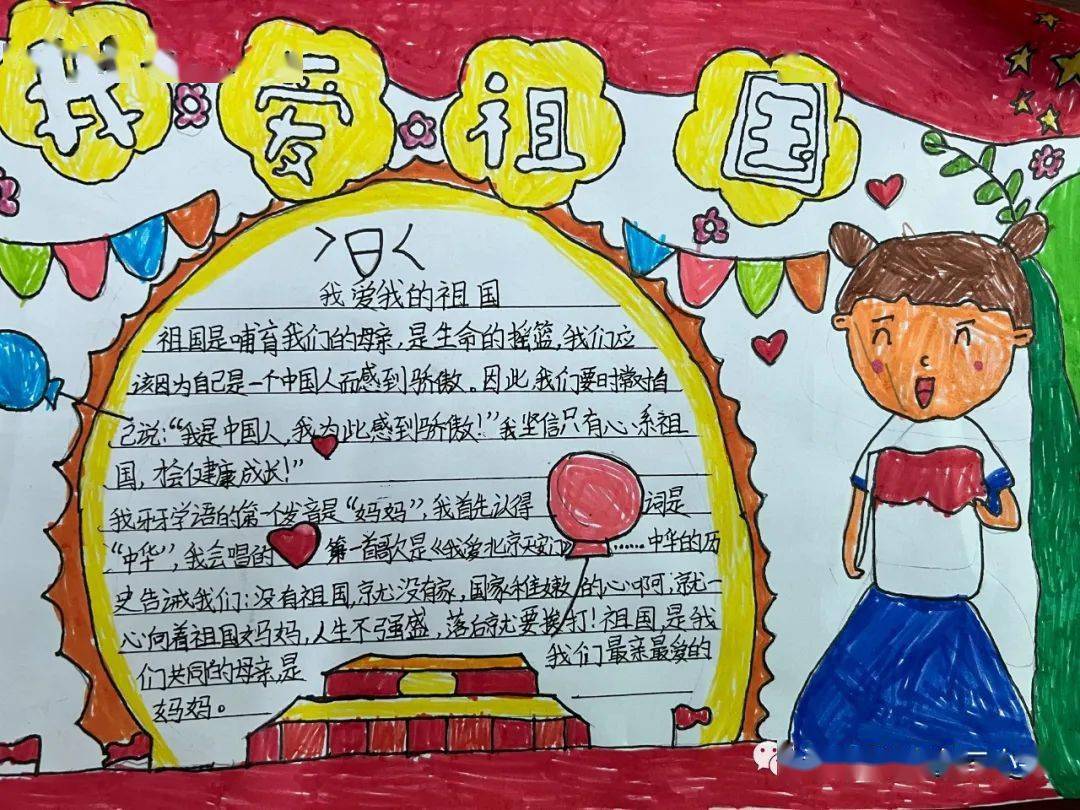 我爱祖国
我爱我的祖国
祖国是哺育我们的母亲，是生命的摇篮，我们应
该因为自己是一个中国人而感到骄傲。因此，我们要时常对自
己说：“我是中国人，我为此感到骄傲！”我坚信只有心系祖
国，才会健康成长！”
我牙牙学语的第一个发音是“妈妈”，我首先认得 词是
“中华”，我会唱的 第一首歌是《我爱北京天安门》……中华的历
史告诫我们：没有祖国，就没有家，国家 的心啊，就一
心向着祖国妈妈，人生不 强盛，落后就要挨打！祖国，是我
们共同的母亲，是 我们最亲最爱的
妈妈。